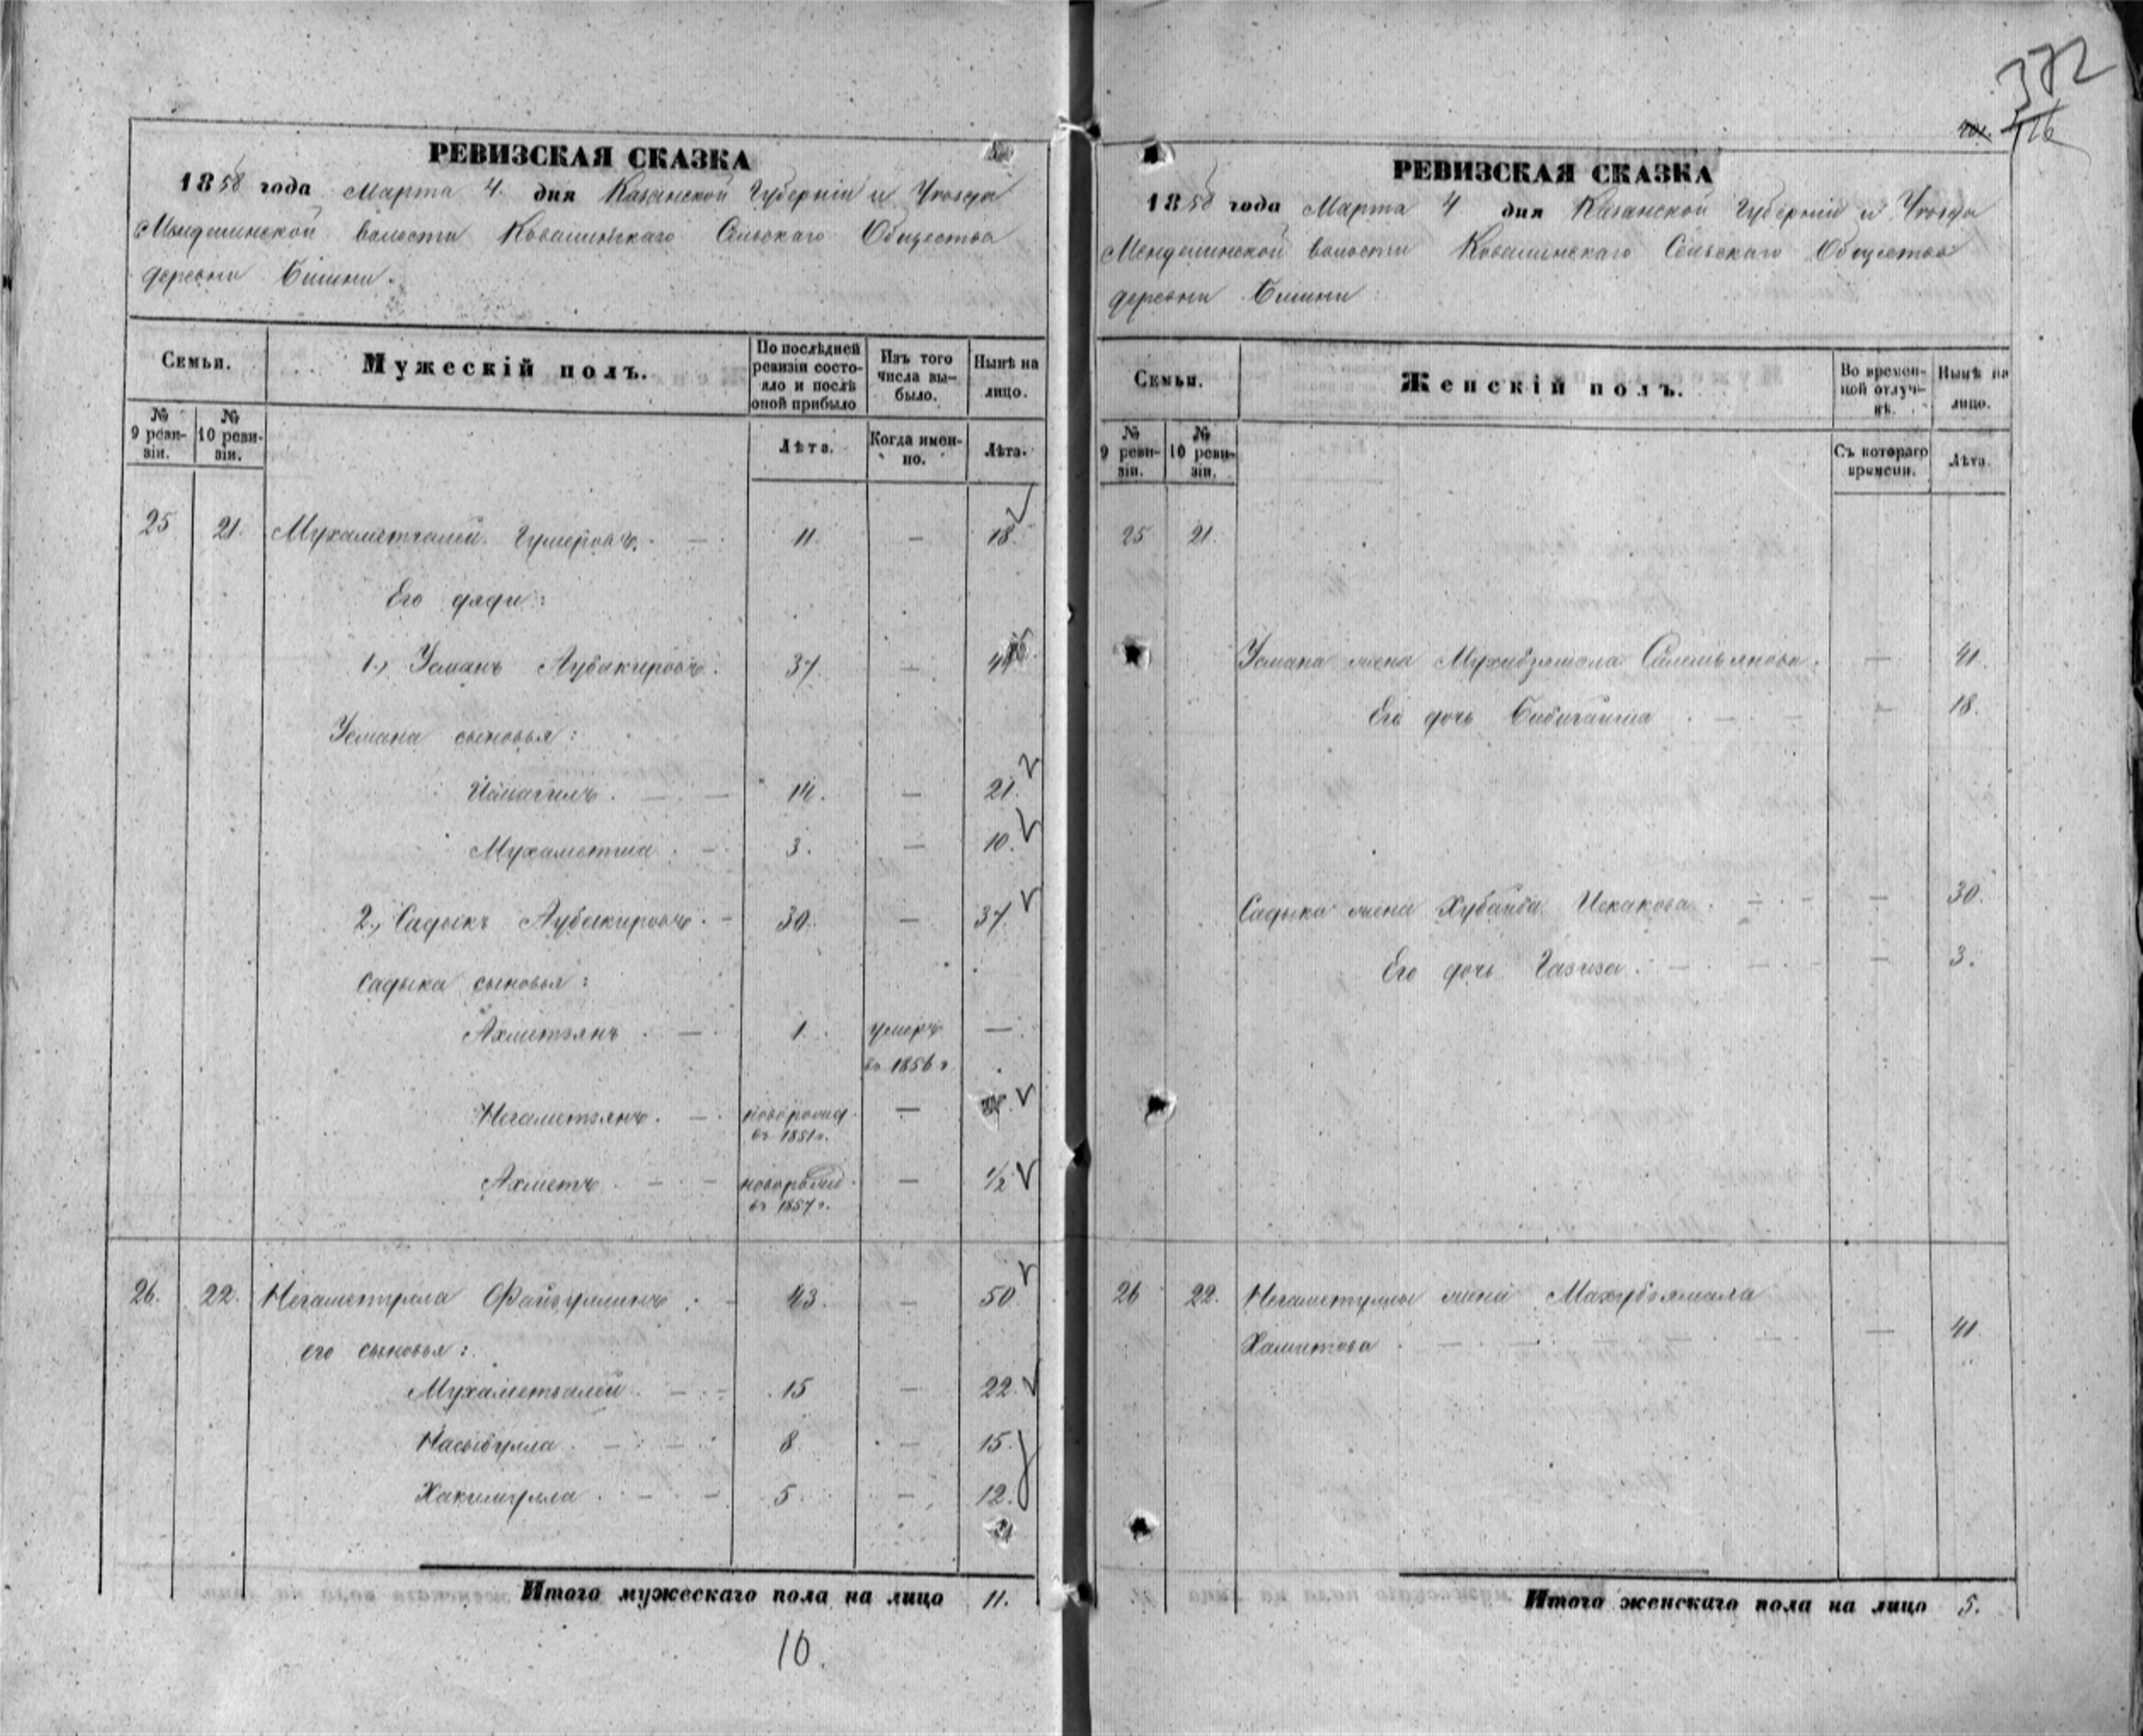 372
416
РЕВИЗСКАЯ СКАЗКА
1858 года Марта 4. дня Казанской Губерніи и Уѣзда
Мендѣлинской волости Ковалинскаго Сельскаго Общества
деревни Бимни.
Семьи.
Мужескій полъ.
По послѣдней ревизіи состояло и послѣ оной прибыло
Изъ того числа выбыло.
Нынѣ на лицо.
№ 9 ревизіи.
№ 10 ревизіи.
Лѣта.
Когда именно.
Лѣта.
25 21. Мухаметгалей Гумеровъ. — 11. — 18.
Его дяди:
1., Усманъ Аубакировъ. 37 —
Усмана сыновья:
Исмагилъ. — 14. — 21.
Мухаметша. — 3. — 10.
2., Садыкъ Аубакировъ. — 30. — 37.
Садыка сыновья:
Ахметзянъ. — 1. умеръ —
въ 1856 г.
Негаметзянъ. — новорожд. —
въ 1851 г.
Ахметъ. — новорожд. — 1/2
въ 1857 г.
26. 22. Негаметулла Файзуллинъ. — 43. — 50
его сыновья:
Мухаметвалей — 15 — 22.
Насыбулла. — 8. — 15.
Хакимулла. — 5. — 12.
Итого мужескаго пола на лицо 11.
10.
РЕВИЗСКАЯ СКАЗКА
1858 года Марта 4 дня Казанской Губерніи и Уѣзда
Мендѣлинской волости Ковалинскаго Сельскаго Общества
деревни Бимни
Семьи.
Женскій полъ.
Во временной отлучкѣ.
Нынѣ на лицо.
№ 9 ревизіи.
№ 10 ревизіи.
Съ котораго времени.
Лѣта.
25 21.
Усмана жена Мухибзямала — 41.
Его дочь Бибигайша — 18.
Садыка жена Хубайба Искакова. — 30.
Его дочь Газиза. — 3.
26 22. Негаметуллы жена Махубзямала
Хамитова — 41.
Итого женскаго пола на лицо 5.